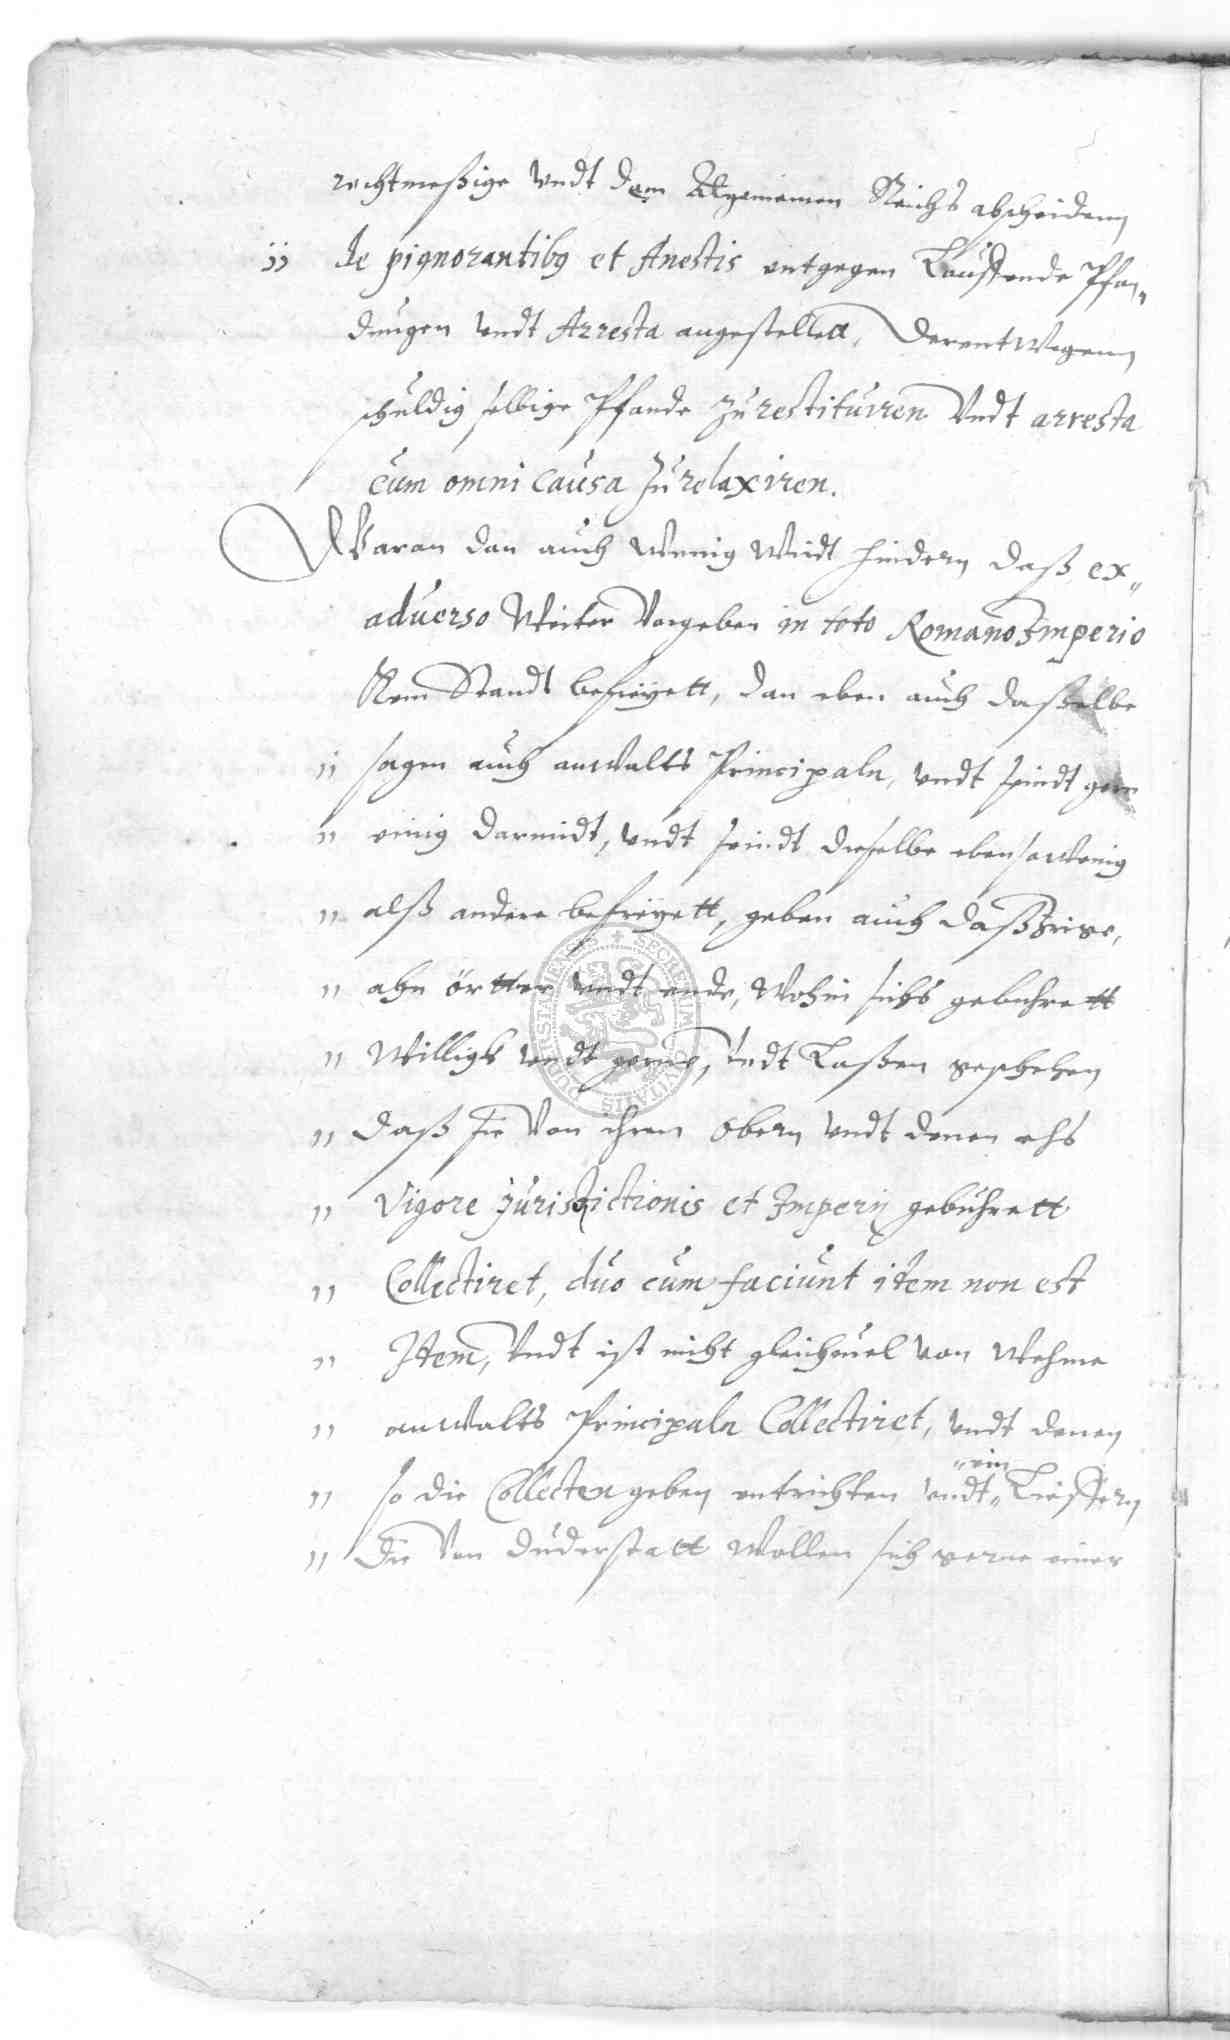 rechtmeßige vndt dem Algemeinen Reichs abscheidenn
de pignorantibus et Arrestis entgegen Lauffende Pfan„
dungen vndt Arresta angestellett, derentwegenn
schuldig selbige Pfande zu restituiren vndt arresta
cum omni causa zu relaxiren.
Waran dan auch wenig wirdt hindern daß ex„
aduerso weiter Vorgeben in toto Romano Imperio
Kein Standt befreyett, dan eben auch daßelbe
„ sagen auch anwalts Principaln, vndt seindt gern
„ einig darmidt, vndt seindt dieselbe eben so wenig
„ alß andere befreyett, geben auch daß Ihrige,
„ ahn örtter vndt ende, wohin sichs gebuhrett
„ willigh vndt gerne, vndt Laßen geschehen
„ daß sie von ihren Obern vndt denen ehs
„ Vigore Jurisdictionis et Imperij gebuhrett
„ Collectiret, duo cum faciunt idem non est
„ Idem, vndt ist nicht gleicheuel von wehme
„ anwalts Principaln Collectiret, vndt denen
„ so die Collecten geben entrichten vndt „ein„ Lieffern
„ Die von Duderstatt wollen sich gerne einer
SECRETUM CIVITATIS DUDERSTADENSIS